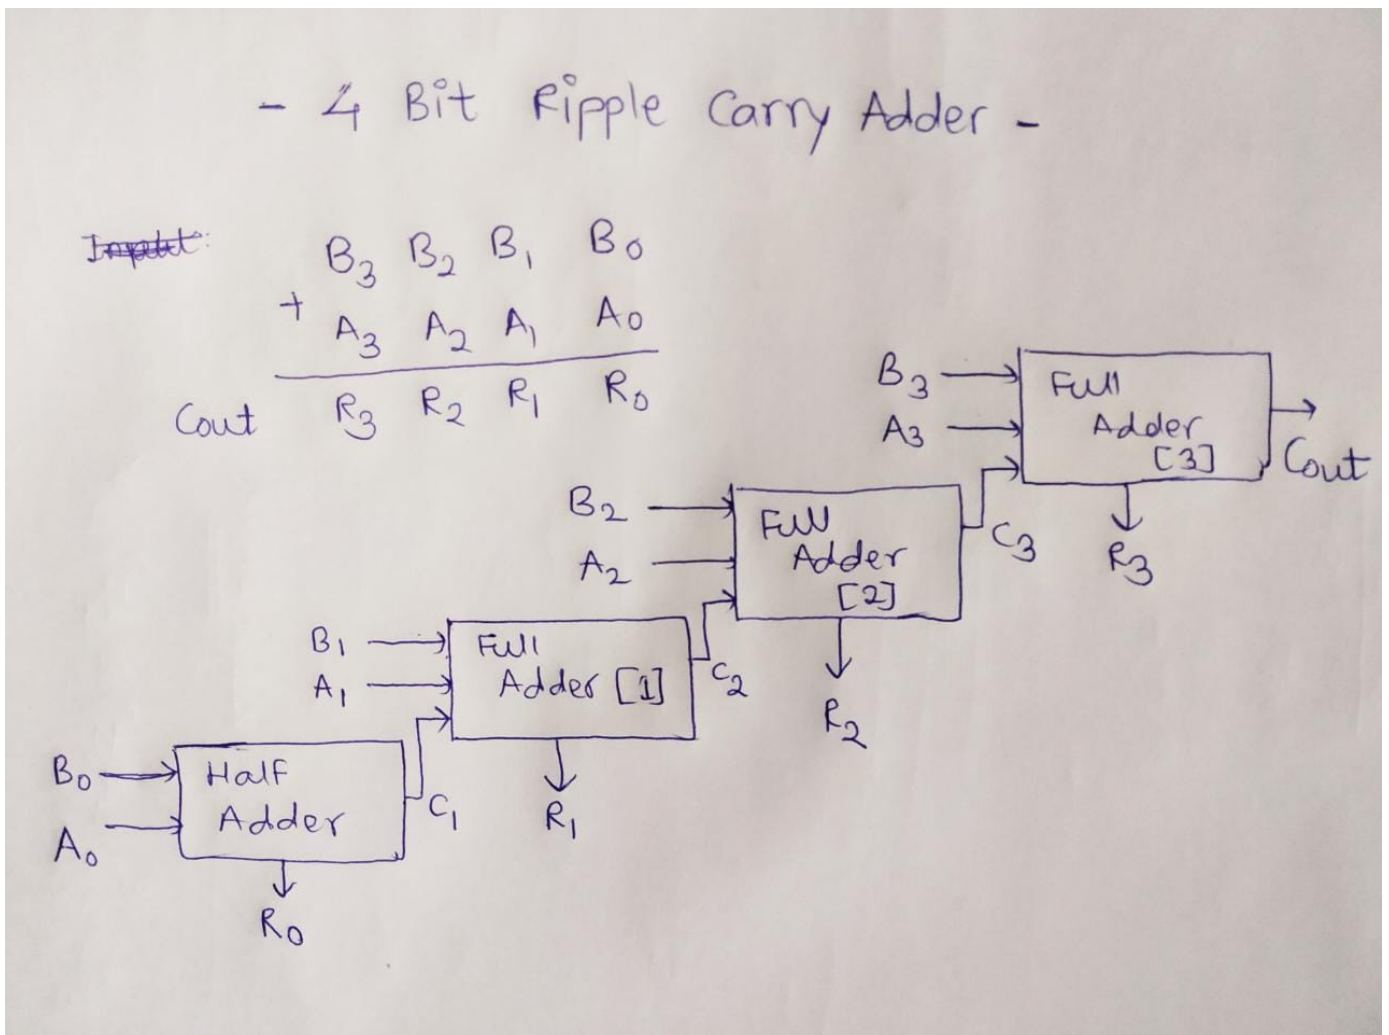 - 4 Bit Ripple Carry Adder -
B3 B2 B1 B0
+ A3 A2 A1 A0
Cout R3 R2 R1 R0
B3
A3
Full
Adder
[3]
Cout
R3
B2
A2
Full
Adder
[2]
C3
R2
B1
A1
Full
Adder [1]
C2
R1
B0
A0
Half
Adder
C1
R0